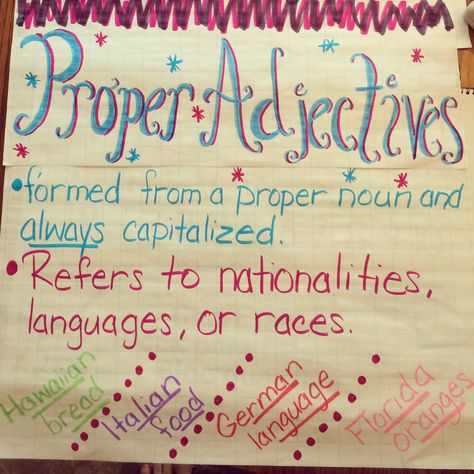 Proper Adjectives
•formed from a proper noun and
always capitalized.
•Refers to nationalities,
languages, or races.
Hawaiian
bread
Italian
food
German
language
Florida
oranges